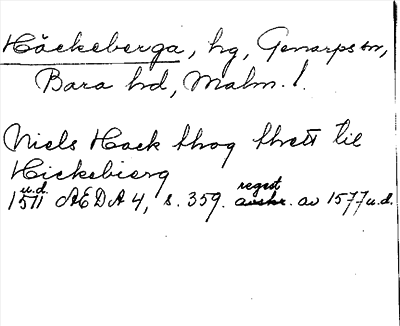 Häckeberga, hg, Genarps sn,
Bara hd, Malm. l.
Niels Hack thog thett til
Hickebierg
1511 u.d. AEDA 4, s. 359. regest avskr. av 1577 u.d.